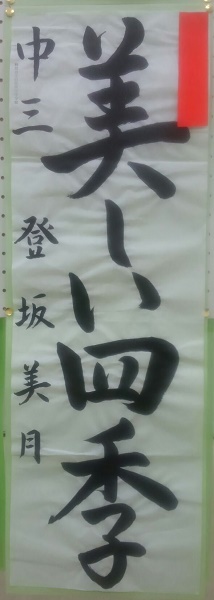 美しい四季
中三 登坂美月